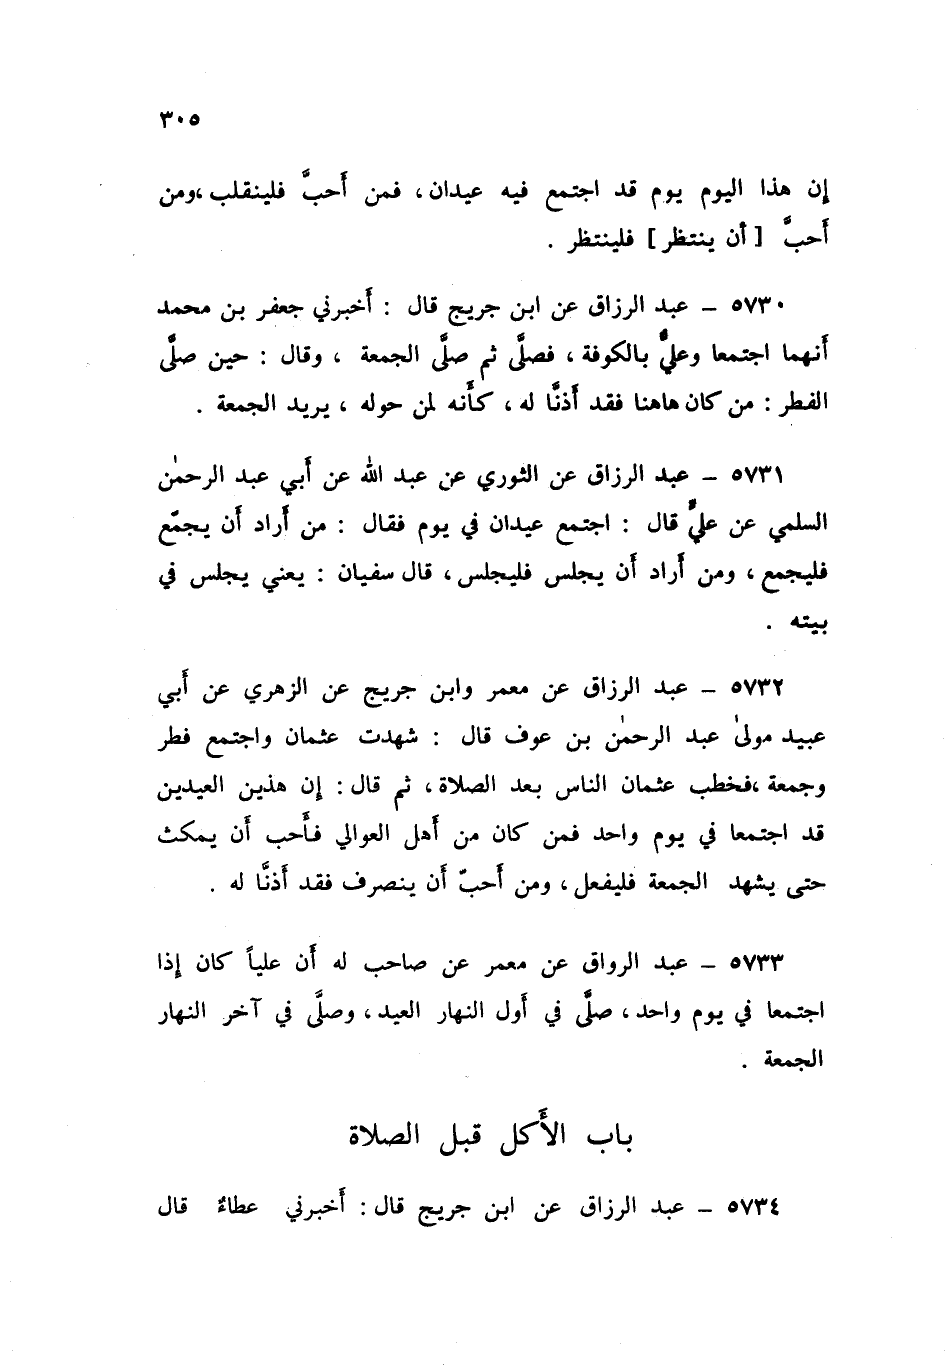 ٣٠٥
إن هذا اليوم يوم قد اجتمع فيه عيدان ، فمن أحبَّ فلينقلب ،ومن
أحبَّ [ أن ينتظر ] فلينتظر .
٥٧٣٠ – عبد الرزاق عن ابن جريج قال : أخبرني جعفر بن محمد
أنهما اجتمعا وعليٌّ بالكوفة ، فصلَّى ثم صلَّى الجمعة ، وقال : حين صلَّى
الفطر : من كان هاهنا فقد أذنَّا له ، كأنه لمن حوله ، يريد الجمعة .
٥٧٣١ – عبد الرزاق عن الثوري عن عبد الله عن أبي عبد الرحمٰن
السلمي عن عليٍّ قال : اجتمع عيدان في يوم فقال : من أراد أن يجمّع
فليجمع ، ومن أراد أن يجلس فليجلس ، قال سفيان : يعني يجلس في
بيته .
٥٧٣٢ – عبد الرزاق عن معمر وابن جريج عن الزهري عن أبي
عبيد مولىٰ عبد الرحمٰن بن عوف قال : شهدت عثمان واجتمع فطر
وجمعة ،فخطب عثمان الناس بعد الصلاة ، ثم قال : إن هذين العيدين
قد اجتمعا في يوم واحد فمن كان من أهل العوالي فأحب أن يمكث
حتى يشهد الجمعة فليفعل ، ومن أحبّ أن ينصرف فقد أذنَّا له .
٥٧٣٣ – عبد الرواق عن معمر عن صاحب له أن علياً كان إذا
اجتمعا في يوم واحد ، صلَّى في أول النهار العيد ، وصلَّى في آخر النهار
الجمعة .
باب الأكل قبل الصلاة
٥٧٣٤ – عبد الرزاق عن ابن جريج قال : أخبرني عطاءٌ قال